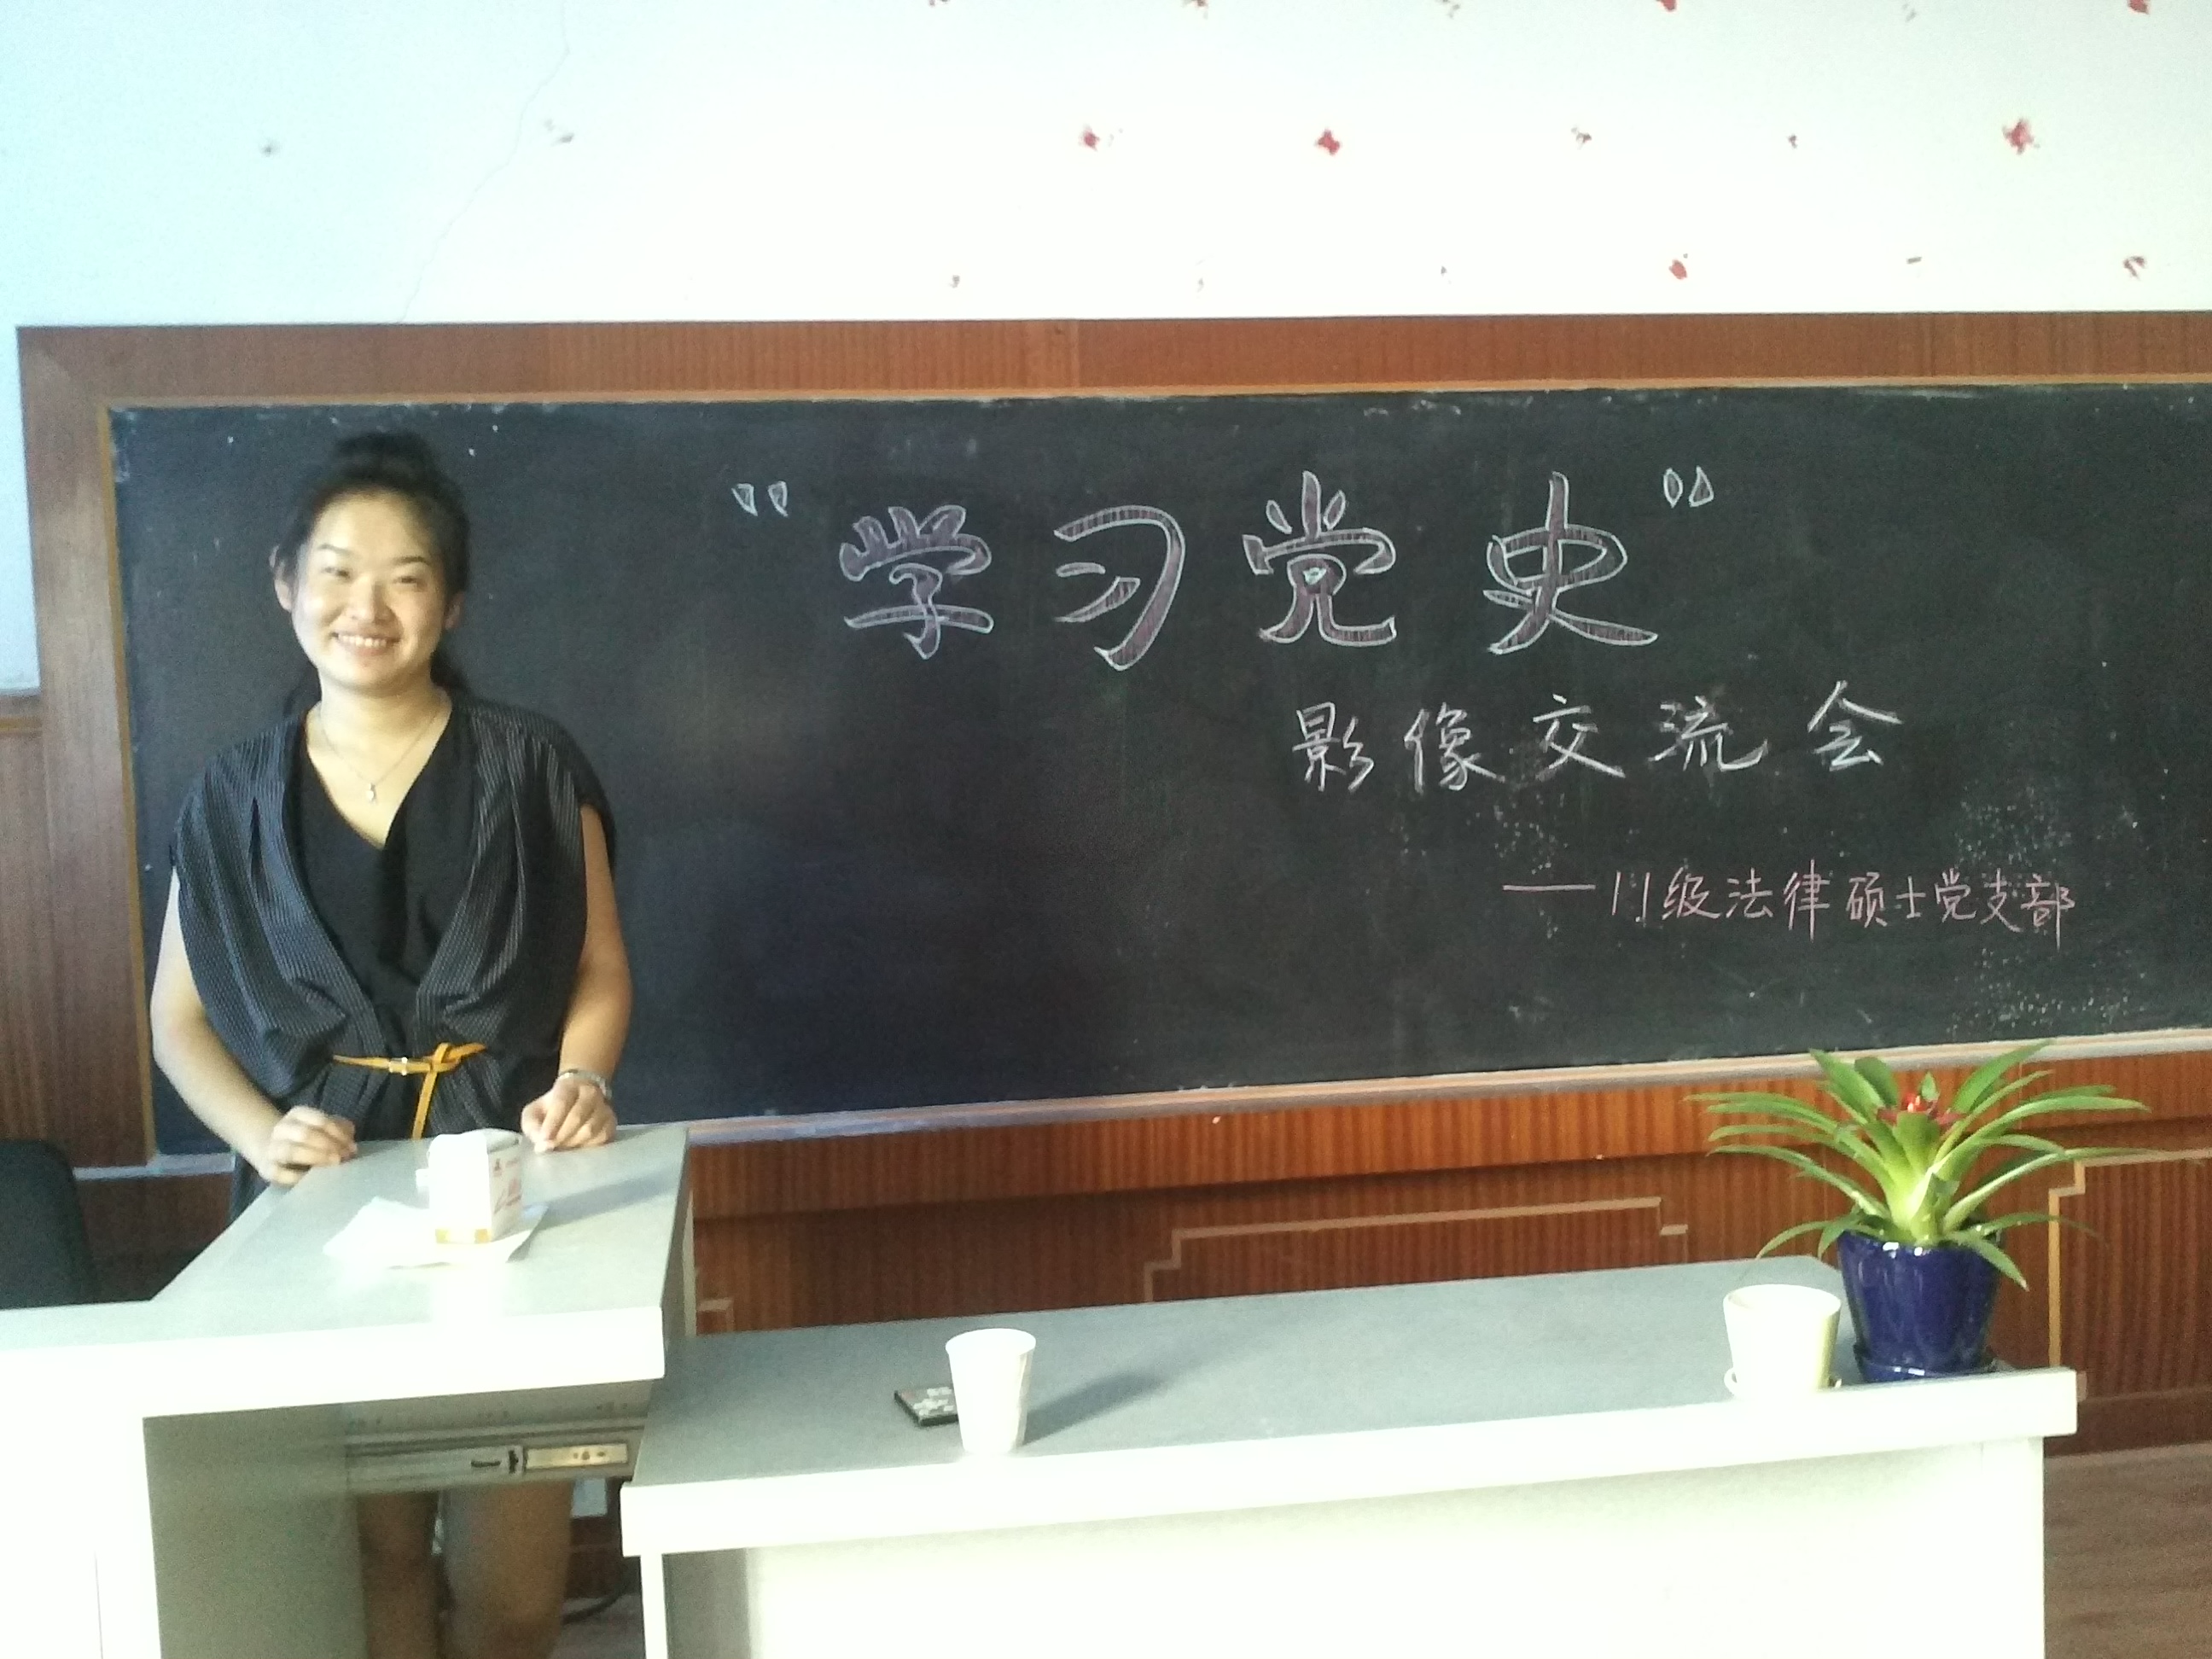 “学习党史”
影像交流会
——11级法律硕士党支部